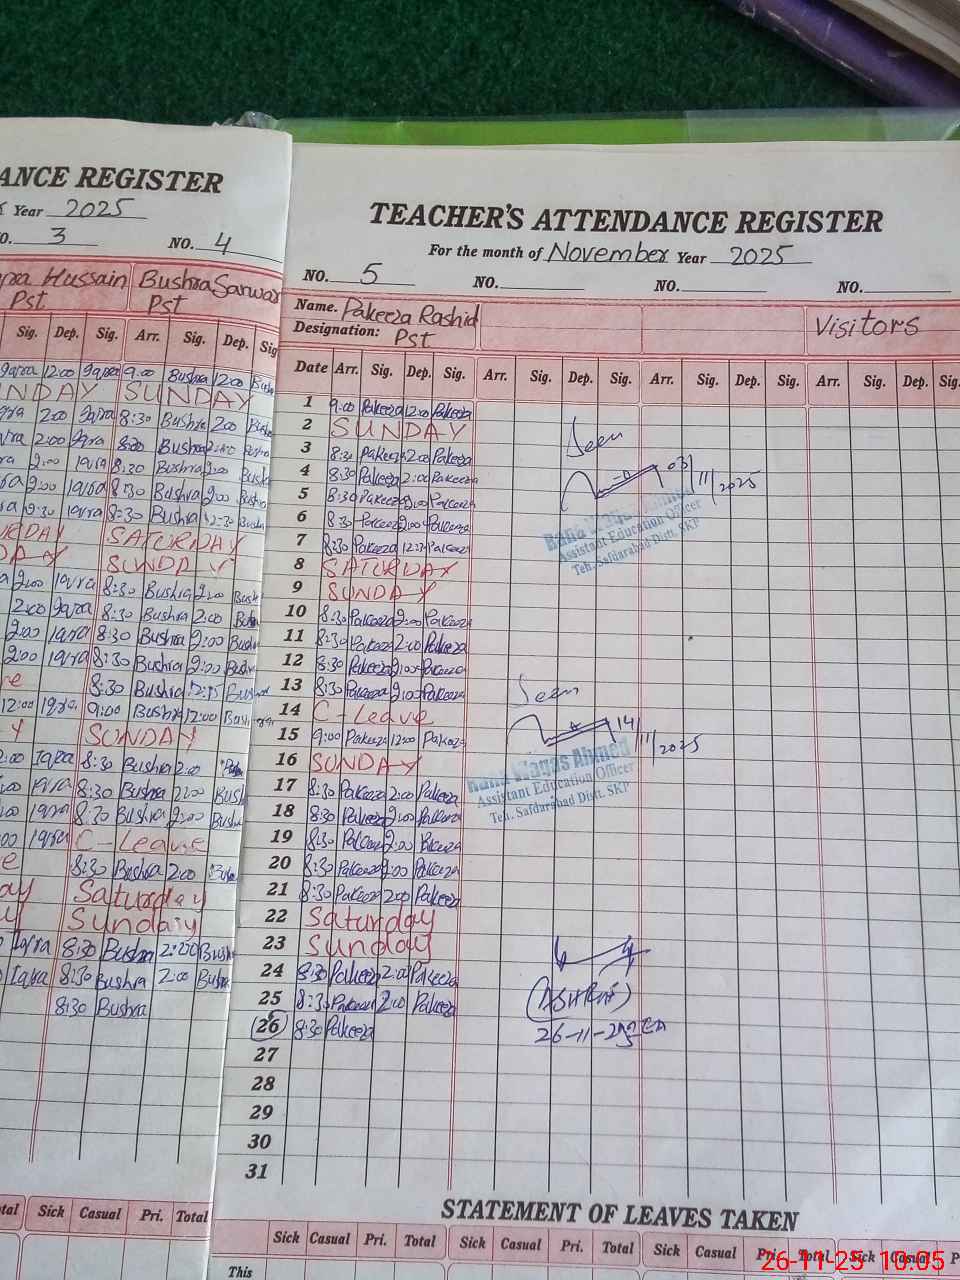 ANCE REGISTER
Year 2025
3 NO. 4
Hussain Bushra Sarwar
Pst Pst
Sig. Dep. Sig. Arr. Sig. Dep. Sig
12:00 9:00 Bushra 12:00
NDAY SUNDAY
2:00 8:30 Bushra 2:00
2:00 8:30 Bushra 2:00
2:00 8:30 Bushra 2:00
2:00 8:30 Bushra 2:00
8:30 Bushra 12:30
RDAY SATURDAY
DAY SUNDAY
2:00 8:30 Bushra 2:00
2:00 8:30 Bushra 2:00
2:00 8:30 Bushra 2:00
2:00 8:30 Bushra 2:00
8:30 Bushra
12:00 9:00 Bushra 12:00
Y SUNDAY
2:00 Iqra 8:30 Bushra 2:00
8:30 Bushra 2:00 Bush
8:30 Bushra 2:00
C-Leave
8:30 Bushra 2:00
ay Saturday
y Sunday
Iqra 8:30 Bushra 2:00 Bush
Iqra 8:30 Bushra 2:00 Bush
8:30 Bushra
otal Sick Casual Pri. Total
TEACHER'S ATTENDANCE REGISTER
For the month of November Year 2025
NO. 5 NO. NO. NO.
Name. Pakeeza Rashid Visitors
Designation: Pst
Date Arr. Sig. Dep. Sig. Arr. Sig. Dep. Sig. Arr. Sig. Dep. Sig. Arr. Sig. Dep. Sig.
1 9:00 Pakeeza 12:00 Pakeeza
2 SUNDAY
3 8:30 Pakeeza 2:00 Pakeeza
Seen
4 8:30 Pakeeza 2:00 Pakeeza
03/11/2025
5 8:30 Pakeeza 2:00 Pakeeza
6 8:30 Pakeeza 2:00 Pakeeza
7 8:30 Pakeeza 12:30 Pakeeza
Assistant Education Officer
Teh. Safdarabad Distt. SKP
8 SATURDAY
9 SUNDAY
10 8:30 Pakeeza 2:00 Pakeeza
11 8:30 Pakeeza 2:00 Pakeeza
12 8:30 Pakeeza 2:00 Pakeeza
13 8:30 Pakeeza 2:00 Pakeeza
Seen
14 C-Leave
14/11/2025
15 9:00 Pakeeza 12:00 Pakeeza
16 SUNDAY
Rana Waqas Ahmed
Assistant Education Officer
Teh. Safdarabad Distt. SKP
17 8:30 Pakeeza 2:00 Pakeeza
18 8:30 Pakeeza 2:00 Pakeeza
19 8:30 Pakeeza 2:00 Pakeeza
20 8:30 Pakeeza 2:00 Pakeeza
21 8:30 Pakeeza 2:00 Pakeeza
22 Saturday
23 Sunday
24 8:30 Pakeeza 2:00 Pakeeza
25 8:30 Pakeeza 2:00 Pakeeza
26 8:30 Pakeeza
26-11-
27
28
29
30
31
STATEMENT OF LEAVES TAKEN
Sick Casual Pri. Total Sick Casual Pri. Total Sick Casual Pri. Total Sick Casual P
This
26-11-25 10:05